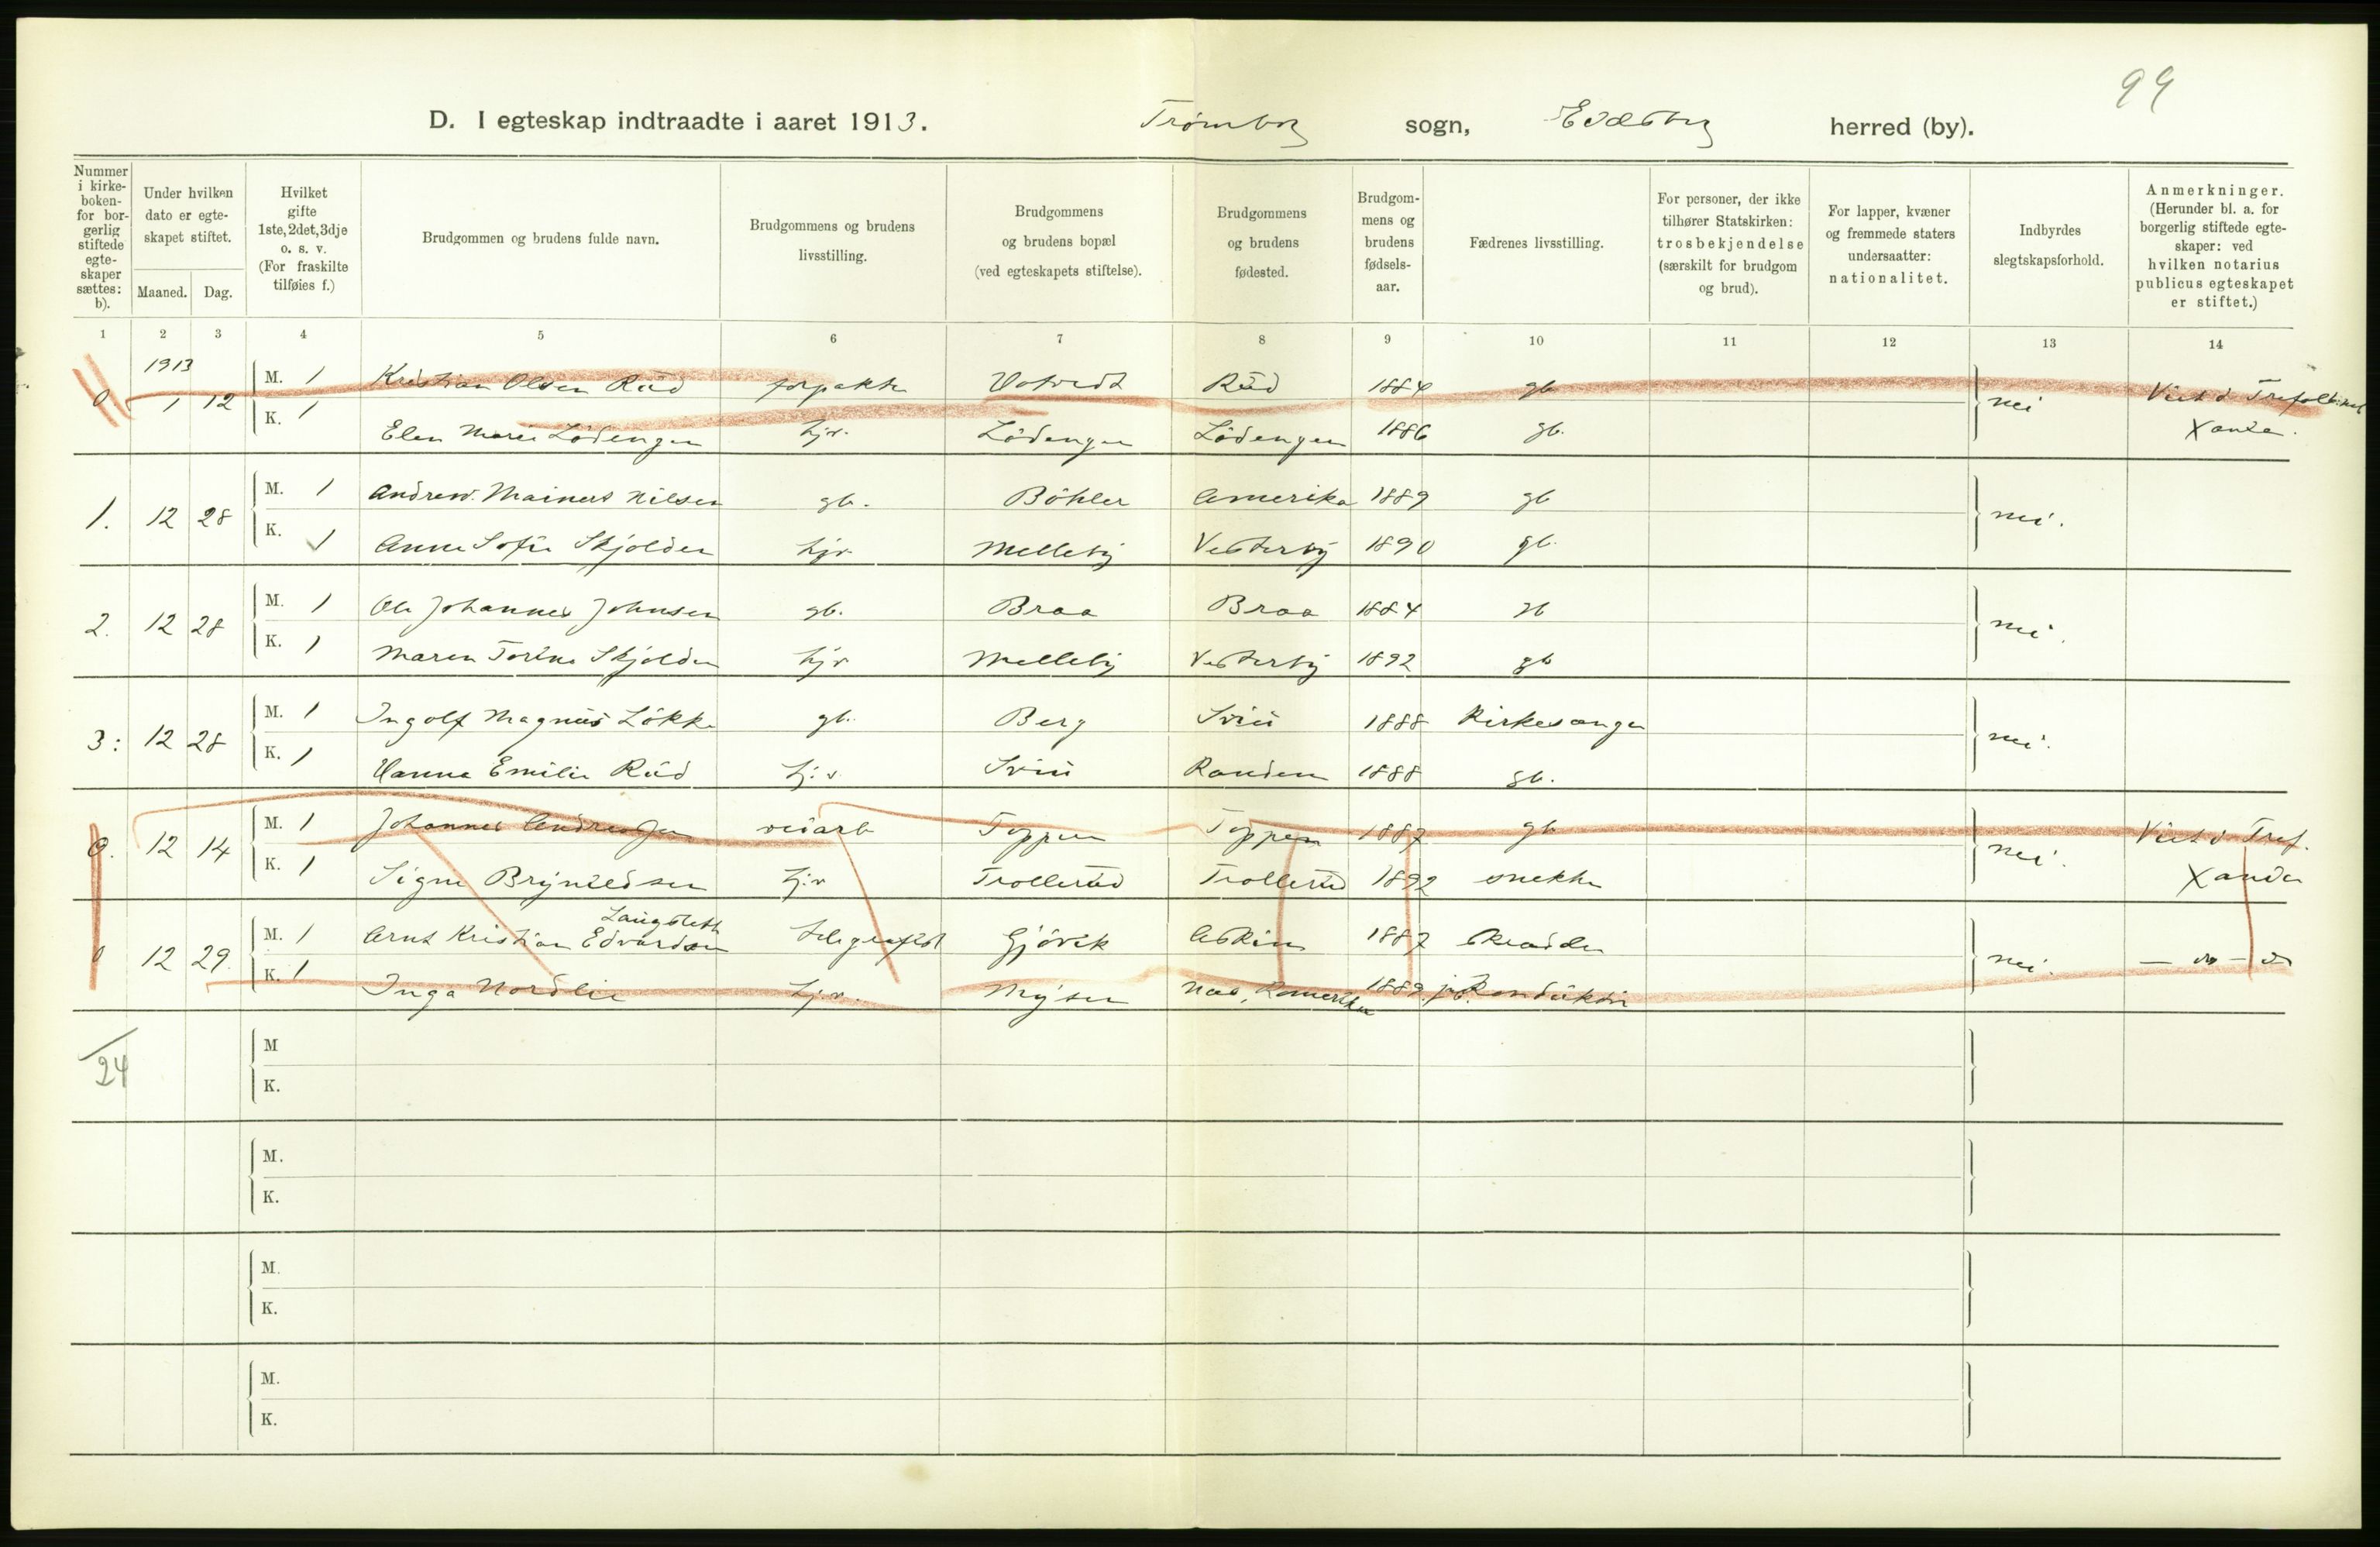 99
D. I egteskap indtraadte i aaret 1913. Trømborg sogn, Eidsberg herred (by).
Nummer i kirkeboken- for borgerlig stiftede egteskaper sættes: b).
Under hvilken dato er egteskapet stiftet.
Maaned. Dag.
Hvilket gifte 1ste, 2det, 3dje o. s. v. (For fraskilte tilføies f.)
Brudgommen og brudens fulde navn.
Brudgommens og brudens livsstilling.
Brudgommens og brudens bopæl (ved egteskapets stiftelse).
Brudgommens og brudens fødested.
Brudgommens og brudens fødsels-aar.
Fædrenes livsstilling.
For personer, der ikke tilhører Statskirken: trosbekjendelse (særskilt for brudgom og brud).
For lapper, kvæner og fremmede staters undersaatter: nationalitet.
Indbyrdes slegtskapsforhold.
Anmerkninger. (Herunder bl. a. for borgerlig stiftede egteskaper: ved hvilken notarius publicus egteskapet er stiftet.)
1 2 3 4 5 6 7 8 9 10 11 12 13 14
1913
0. 1 12 M. 1 Kristian Olsen Rud forpakter Råd 1884 gb nei Viet i
K. 1 Elen Marie Lödengen hjv. Lödengen Lödengen 1886 gb.
1. 12 28 M. 1 Andrew Mainert Nilsen gb. Böhler Amerika 1889 gb nei.
K. 1 Anne Sofie Skjolden hjv. Melleby Vesterby 1890 gb.
2. 12 28 M. 1 Ole Johannes Johnsen gb. Braa Braa 1884 gb nei.
K. 1 Maren Torine Skjolden hjv Melleby Vesterby 1892 gb
3: 12 28 M. 1 Ingolf Magnus Lökke gb. Berg 1888 Kirkesanger nei.
K. 1 Hanna Emilie Rud hjv. 1888 gb.
0. 12 14 M. 1 Johannes Andreas veiarb Toppen Toppen 1887 gb nei. Viet i Tref.
K. 1 Signe Bryntedsen hjv Trollerud Trollerud 1892 snekker
0 12 29. M. 1 Arnt Kristian Edvardsen Langsleth telegrafist Gjövik Askim 1887 skrædder nei. — do — do
K. 1 Inga Nordlie hjv. Mysen Næs, Romerike 1889. Konduktör
24
M
K.
M.
K.
M.
K.
M.
K.